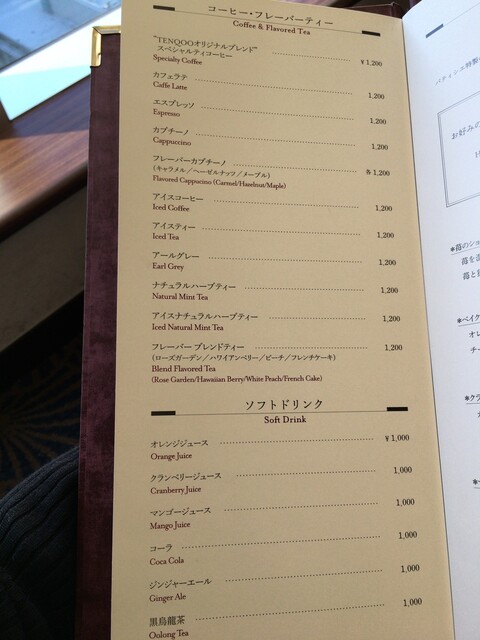 コーヒー・フレーバーティー
Coffee & Flavored Tea
"TENQOOオリジナルブレンド"
スペシャルティコーヒー ¥1,200
Specialty Coffee
カフェラテ 1,200
Caffe Latte
エスプレッソ 1,200
Espresso
カプチーノ 1,200
Cappuccino
フレーバーカプチーノ 各1,200
(キャラメル/ヘーゼルナッツ/メープル)
Flavored Cappucino (Carmel/Hazelnut/Maple)
アイスコーヒー 1,200
Iced Coffee
アイスティー 1,200
Iced Tea
アールグレー 1,200
Earl Grey
ナチュラルハーブティー 1,200
Natural Mint Tea
アイスナチュラルハーブティー 1,200
Iced Natural Mint Tea
フレーバー ブレンドティー 1,200
(ローズガーデン/ハワイアンベリー/ピーチ/フレンチケーキ)
Blend Flavored Tea
(Rose Garden/Hawaiian Berry/White Peach/French Cake)
ソフトドリンク
Soft Drink
オレンジジュース ¥1,000
Orange Juice
クランベリージュース 1,000
Cranberry Juice
マンゴージュース 1,000
Mango Juice
コーラ 1,000
Coca Cola
ジンジャーエール 1,000
Ginger Ale
黒烏龍茶 1,000
Oolong Tea
パティシエ特製
お好みの
*苺のショ
苺を
苺と
*ベイク
オレ
チー
*クラ